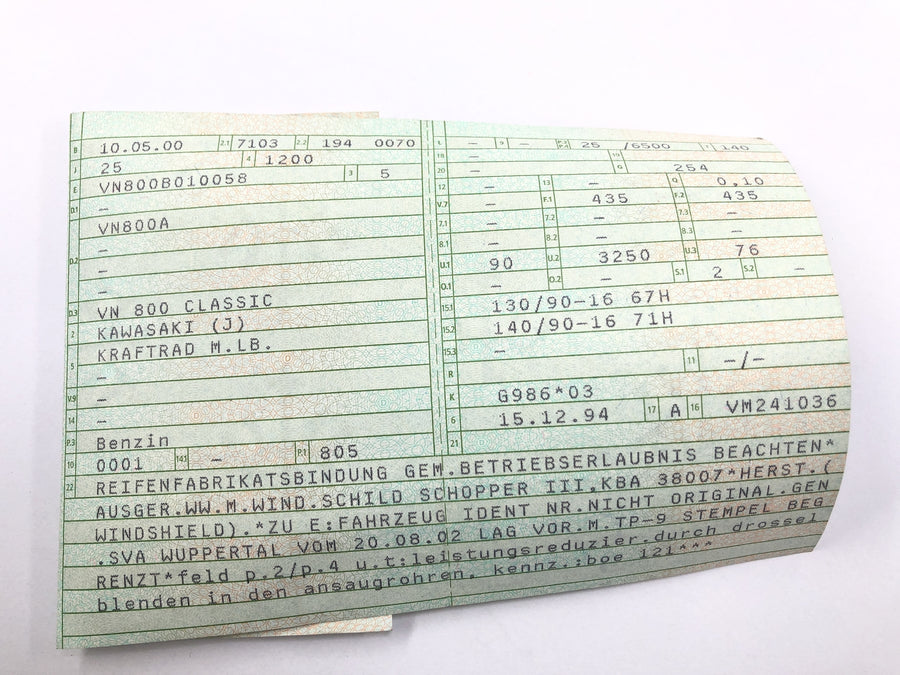 B 10.05.00 2.1 7103 2.2 194 0070
J 25 4 1200
E VN800B010058 3 5
D.1 –
VN800A
D.2 –
–
–
D.3 VN 800 CLASSIC
2 KAWASAKI (J)
5 KRAFTRAD M.LB.
–
V.9 –
14 –
P.3 Benzin
10 0001 14.1 – P.1 805
L – 9 – P.2 P.4 25 /6500 T 140
18 – 19
20 – G 254
12 – 13 – Q 0,10
V.7 – F.1 435 F.2 435
7.1 – 7.2 – 7.3 –
8.1 – 8.2 – 8.3 –
U.1 90 U.2 3250 U.3 76
O.1 – O.2 – S.1 2 S.2 –
15.1 130/90-16 67H
15.2 140/90-16 71H
15.3 –
R 11 –/–
K G986*03
6 15.12.94 17 A 16 VM241036
21
22 REIFENFABRIKATSBINDUNG GEM.BETRIEBSERLAUBNIS BEACHTEN*
AUSGER.WW.M.WIND.SCHILD SCHOPPER III,KBA 38007*HERST.(
WINDSHIELD).*ZU E:FAHRZEUG IDENT NR.NICHT ORIGINAL.GEN
.SVA WUPPERTAL VOM 20.08.02 LAG VOR.M.TP-9 STEMPEL BEG
RENZT*feld p.2/p.4 u.t:leistungsreduzier.durch drossel
blenden in den ansaugrohren, kennz.:boe 121***